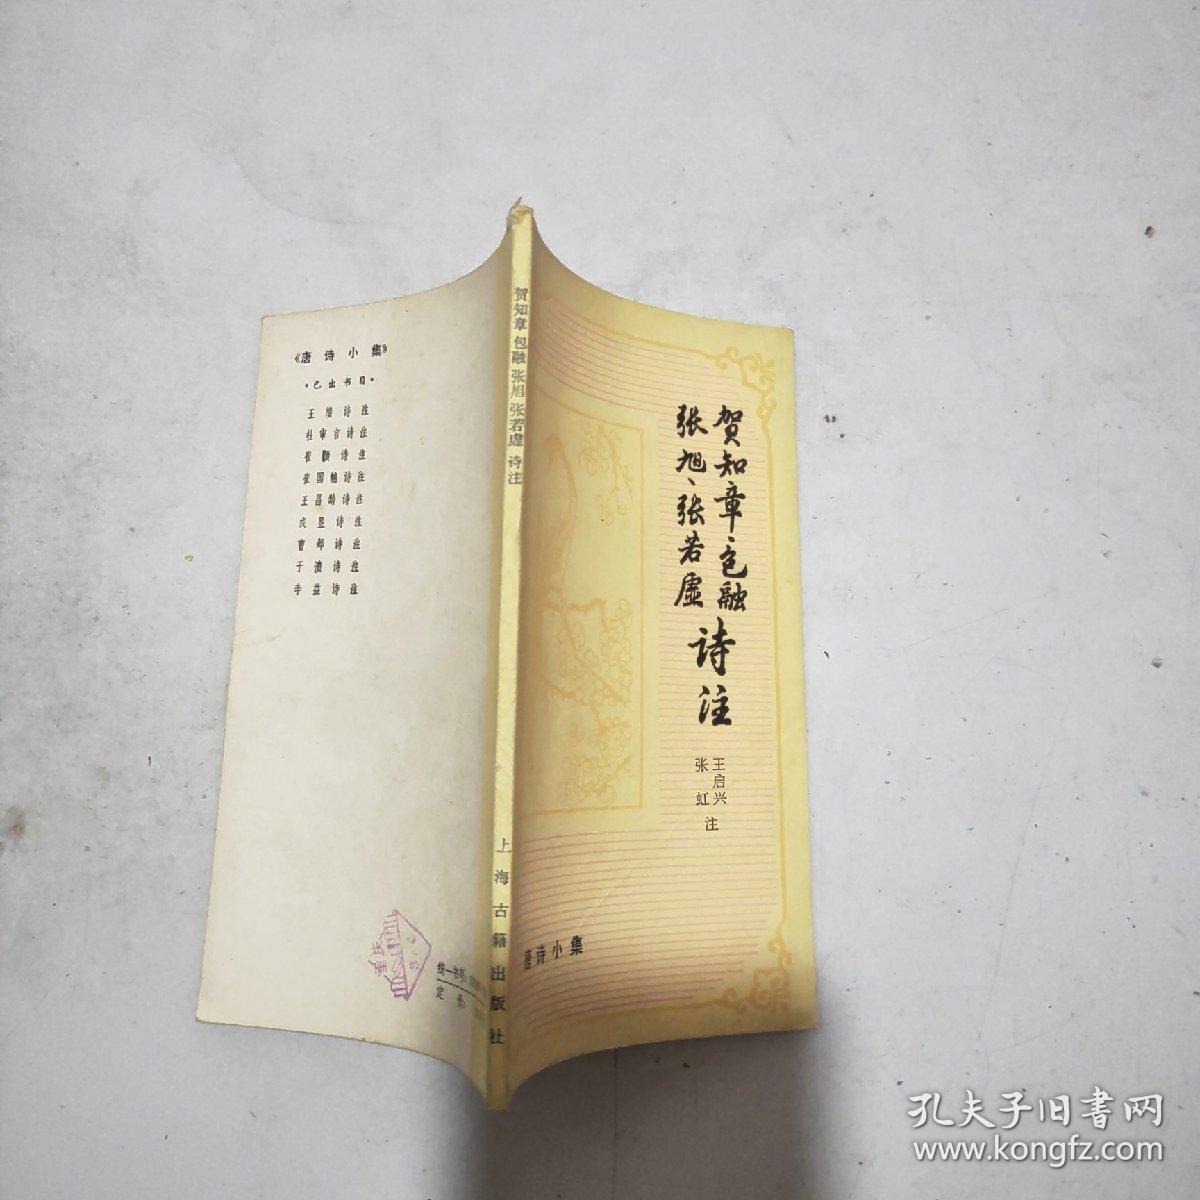 《唐诗小集》
·已出书目·
王绩诗注
杜审言诗注
崔颢诗注
崔国辅诗注
王昌龄诗注
戎昱诗注
曹邺诗注
于濆诗注
李益诗注
重庆
统一书号
定价
贺知章 包融 张旭 张若虚 诗注
上海古籍出版社
贺知章、包融
张旭、张若虚
诗注
王启兴
张虹
注
唐诗小集
孔夫子旧书网
www.kongfz.com